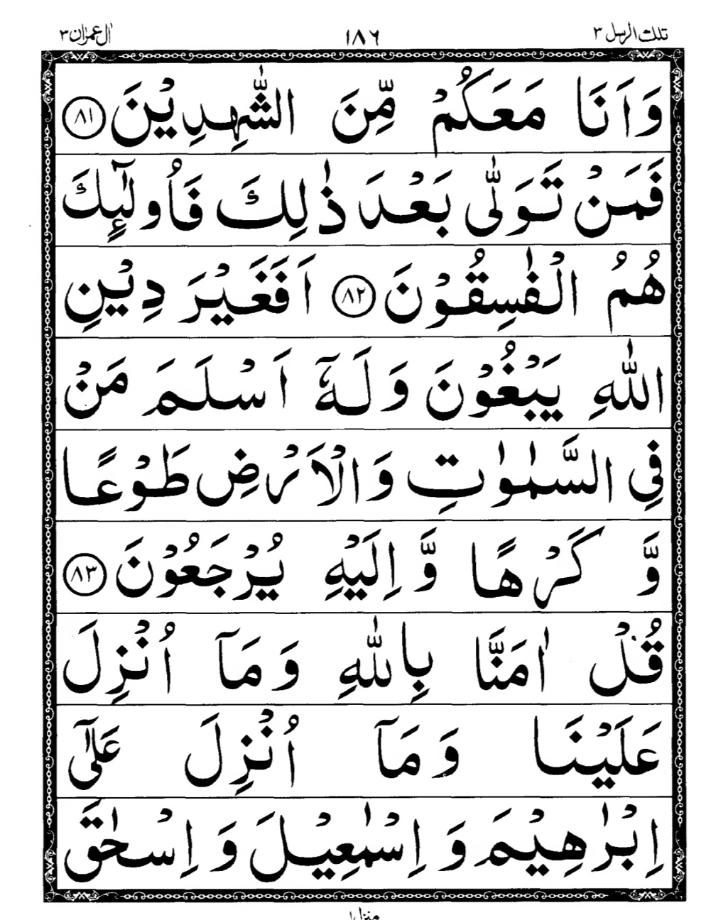 تلك الرسل ٣ ١٨٦ اٰل عمرٰان ٣
وَاَنَا مَعَكُمْ مِّنَ الشّٰهِدِيْنَ ﴿٨١﴾
فَمَنْ تَوَلّٰى بَعْدَ ذٰلِكَ فَاُولٰٓئِكَ
هُمُ الْفٰسِقُوْنَ ﴿٨٢﴾ اَفَغَيْرَ دِيْنِ
اللّٰهِ يَبْغُوْنَ وَلَهٗٓ اَسْلَمَ مَنْ
فِى السَّمٰوٰتِ وَالْاَرْضِ طَوْعًا
وَّ كَرْهًا وَّ اِلَيْهِ يُرْجَعُوْنَ ﴿٨٣﴾
قُلْ اٰمَنَّا بِاللّٰهِ وَمَآ اُنْزِلَ
عَلَيْنَا وَمَآ اُنْزِلَ عَلٰٓى
اِبْرٰهِيْمَ وَ اِسْمٰعِيْلَ وَ اِسْحٰقَ
منزل١